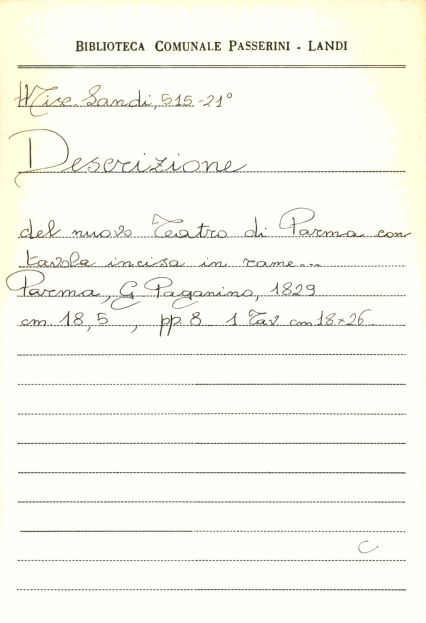 BIBLIOTECA COMUNALE PASSERINI - LANDI
Misc. Landi, 515-21°
Descrizione
del nuovo Teatro di Parma con
tavola incisa in rame...
Parma, G. Paganino, 1829
cm. 18,5 , pp. 8 1 Tav cm 18×26
C